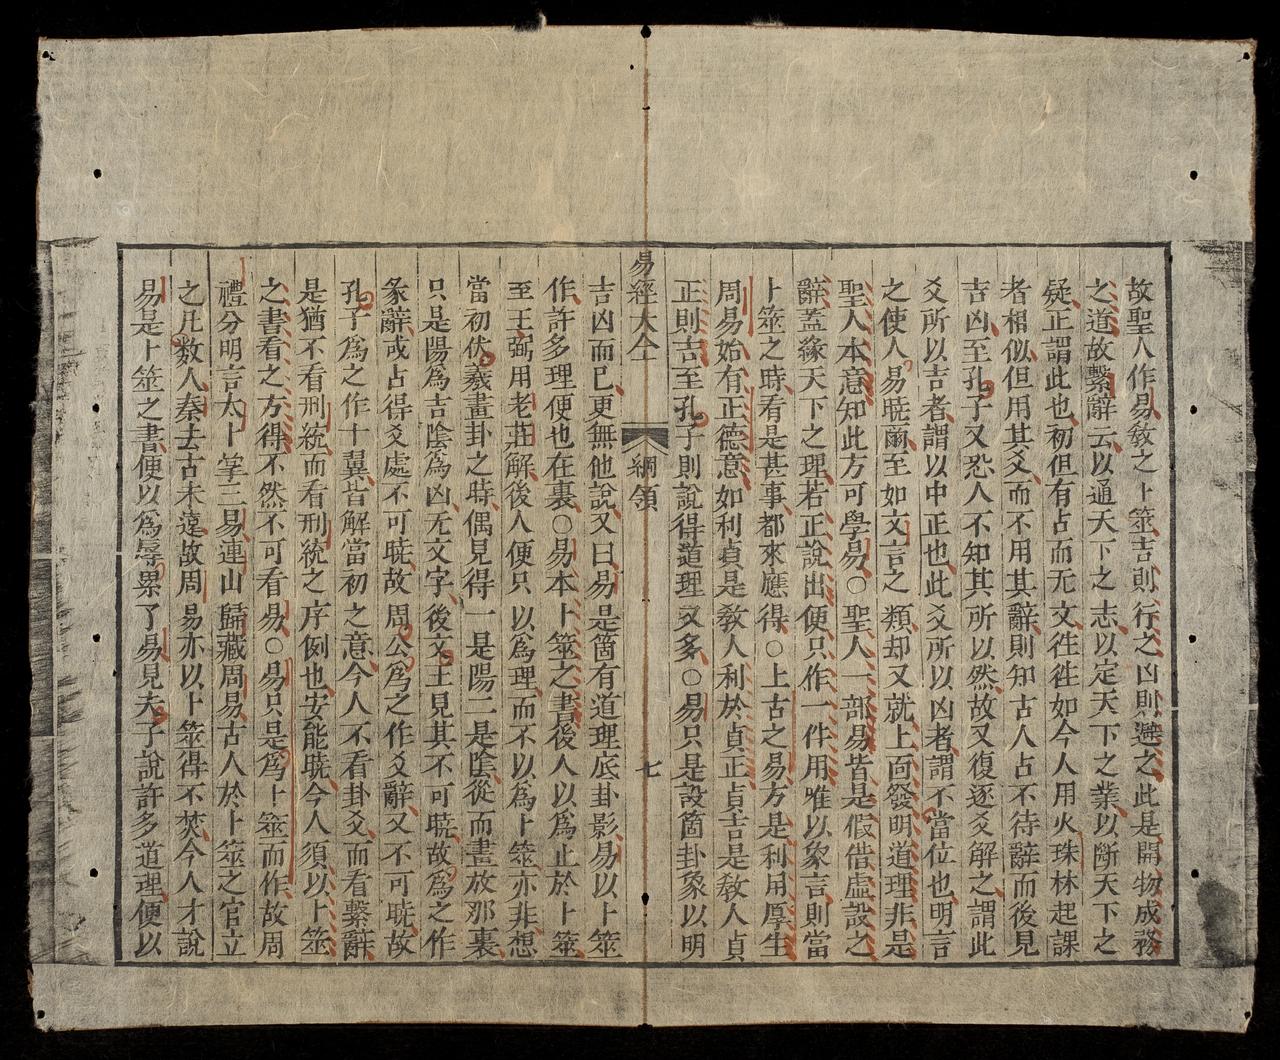 故聖人作易教之卜筮吉則行之凶則避之此是開物成務
之道故繫辭云以通天下之志以定天下之業以斷天下之
疑正謂此也初但有占而无文徃徃如今人用火珠林起課
者相似但用其爻而不用其辭則知古人占不待辭而後見
吉凶至孔子又恐人不知其所以然故又復逐爻解之謂此
爻所以吉者謂以中正也此爻所以凶者謂不當位也明言
之使人易暁爾至如文言之類却又就上面發明道理非是
聖人本意知此方可學易○聖人一部易皆是假借虛設之
辭蓋緣天下之理若正說出便只作一件用唯以象言則當
卜筮之時看是甚事都來應得○上古之易方是利用厚生
周易始有正德意如利貞是教人利於貞正貞吉是教人貞
正則吉至孔子則說得道理又多○易只是設箇卦象以明
易經大全 綱領 七
吉凶而已更無他說又曰易是箇有道理底卦影易以卜筮
作許多理便也在裏○易本卜筮之書後人以為止於卜筮
至王弼用老莊解後人便只以為理而不以為卜筮亦非想
當初伏羲畫卦之時偶見得一是陽二是陰從而畫放那裏
只是陽為吉陰為凶无文字後文王見其不可暁故為之作
彖辭或占得爻處不可暁故周公為之作爻辭又不可暁故
孔子為之作十翼皆解當初之意今人不看卦爻而看繫辭
是猶不看刑統而看刑統之序例也安能暁今人須以卜筮
之書看之方得不然不可看易○易只是為卜筮而作故周
禮分明言太卜掌三易連山歸藏周易古人於卜筮之官立
之凡数人秦去古未遠故周易亦以卜筮得不焚今人才說
易是卜筮之書便以為辱累了易見夫子說許多道理便以